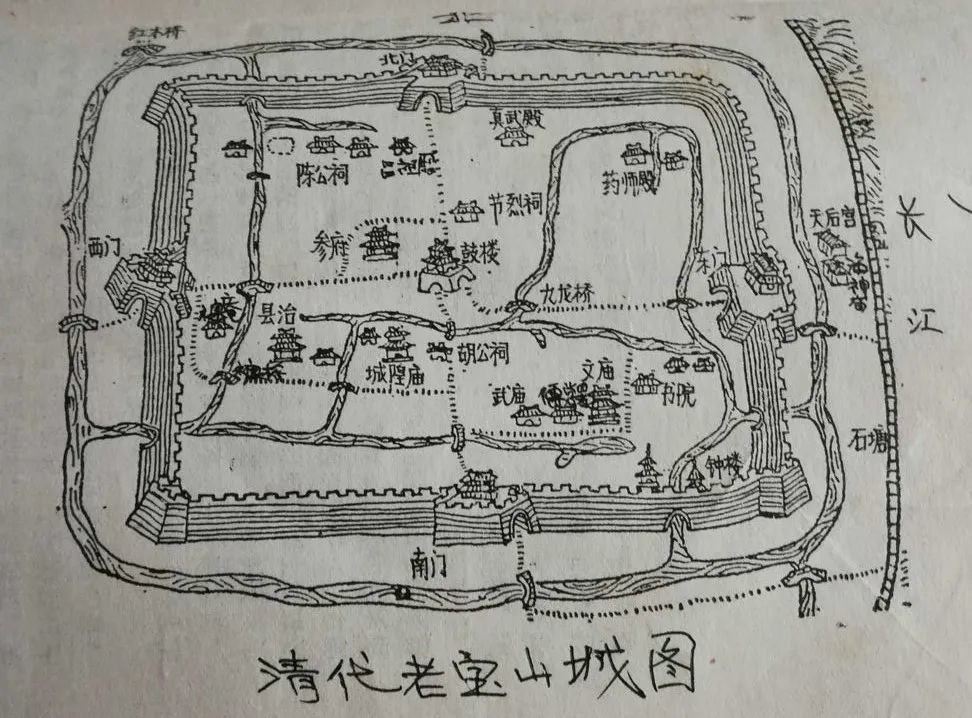 红木桥
北门
真武殿
陈公祠
药师殿
节烈祠
天后宫
海神庙
长
江
西门
参府
鼓楼
东门
九龙桥
县治
城隍庙
胡公祠
文庙
武庙
书院
石塘
钟楼
南门
清代老宝山城图